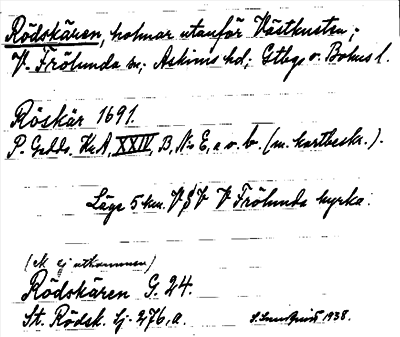 Rödskären, holmar utanför Västkusten,
V. Frölunda sn, Askims hd, Gtbgs o. Bohus l.
Röskär 1691.
P. Gedda. KrA, XXIV, B, N:o E, a o. b. (m. kartbeskr.).
Läge 5 km. V t V V Frölunda kyrka.
(Ej utkommen)
Rödskären G. 24.
St. Rödsk. Sj. 276, a.
1938.